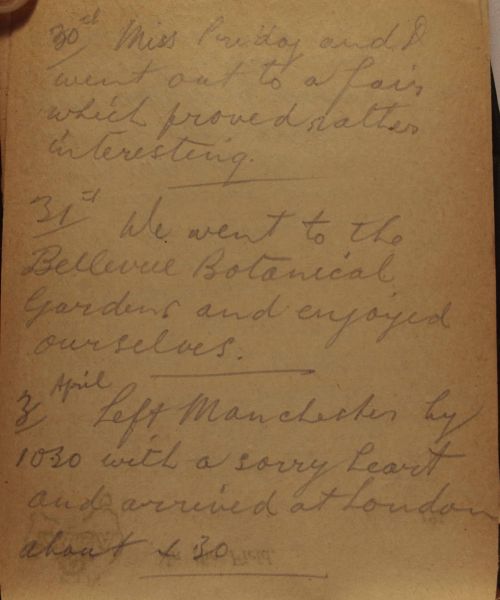 30st Miss Priday and I
went out to a fair
which proved rather
interesting.
31st We went to the
Bellevue Botanical
Gardens and enjoyed
ourselves.
3 April Left Manchester by
1030 with a sorry heart
and arrived at London
about 30